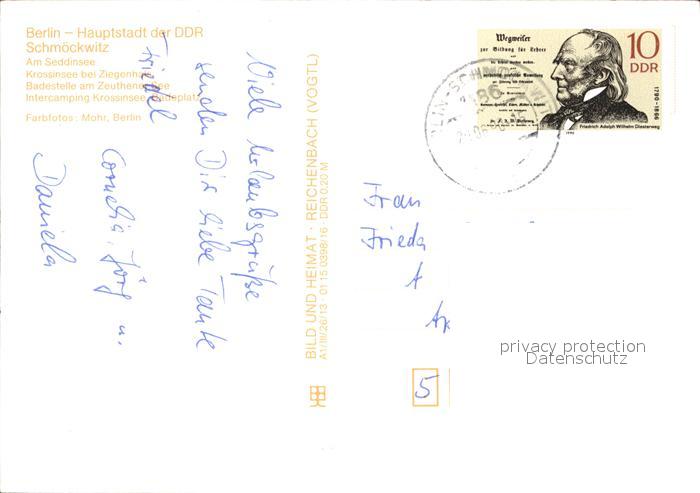 Berlin – Hauptstadt der DDR
Schmöckwitz
Am Seddinsee
Krossinsee bei Ziegenhals
Badestelle am Zeuthener See
Intercamping Krossinsee, Badeplatz
Farbfotos: Mohr, Berlin
Viele Urlaubsgrüße
senden Dir liebe Tante
Friedel
Cornelia, Jörg u.
Daniela
BILD UND HEIMAT · REICHENBACH (VOGTL)
A1/III/26/13 · 01 15 0398/16 · DDR 0,20 M
Wegweiser
zur Bildung für Lehrer
10
DDR
1790–1866
Friedrich Adolph Wilhelm Diesterweg
1990
1186
Frau
Frieda
A
5
privacy protection
Datenschutz